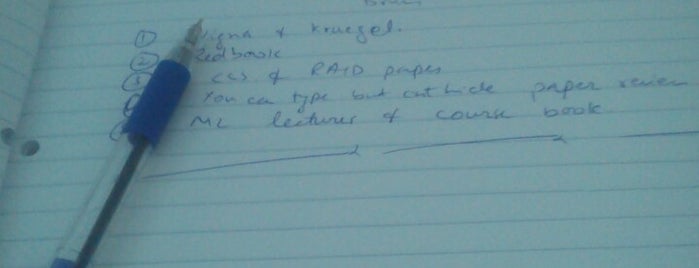 ① Vigna & Kruegel.
② Redbook
③ CCS & RAID papers
You can type but cut hide paper review
ML lectures & course book